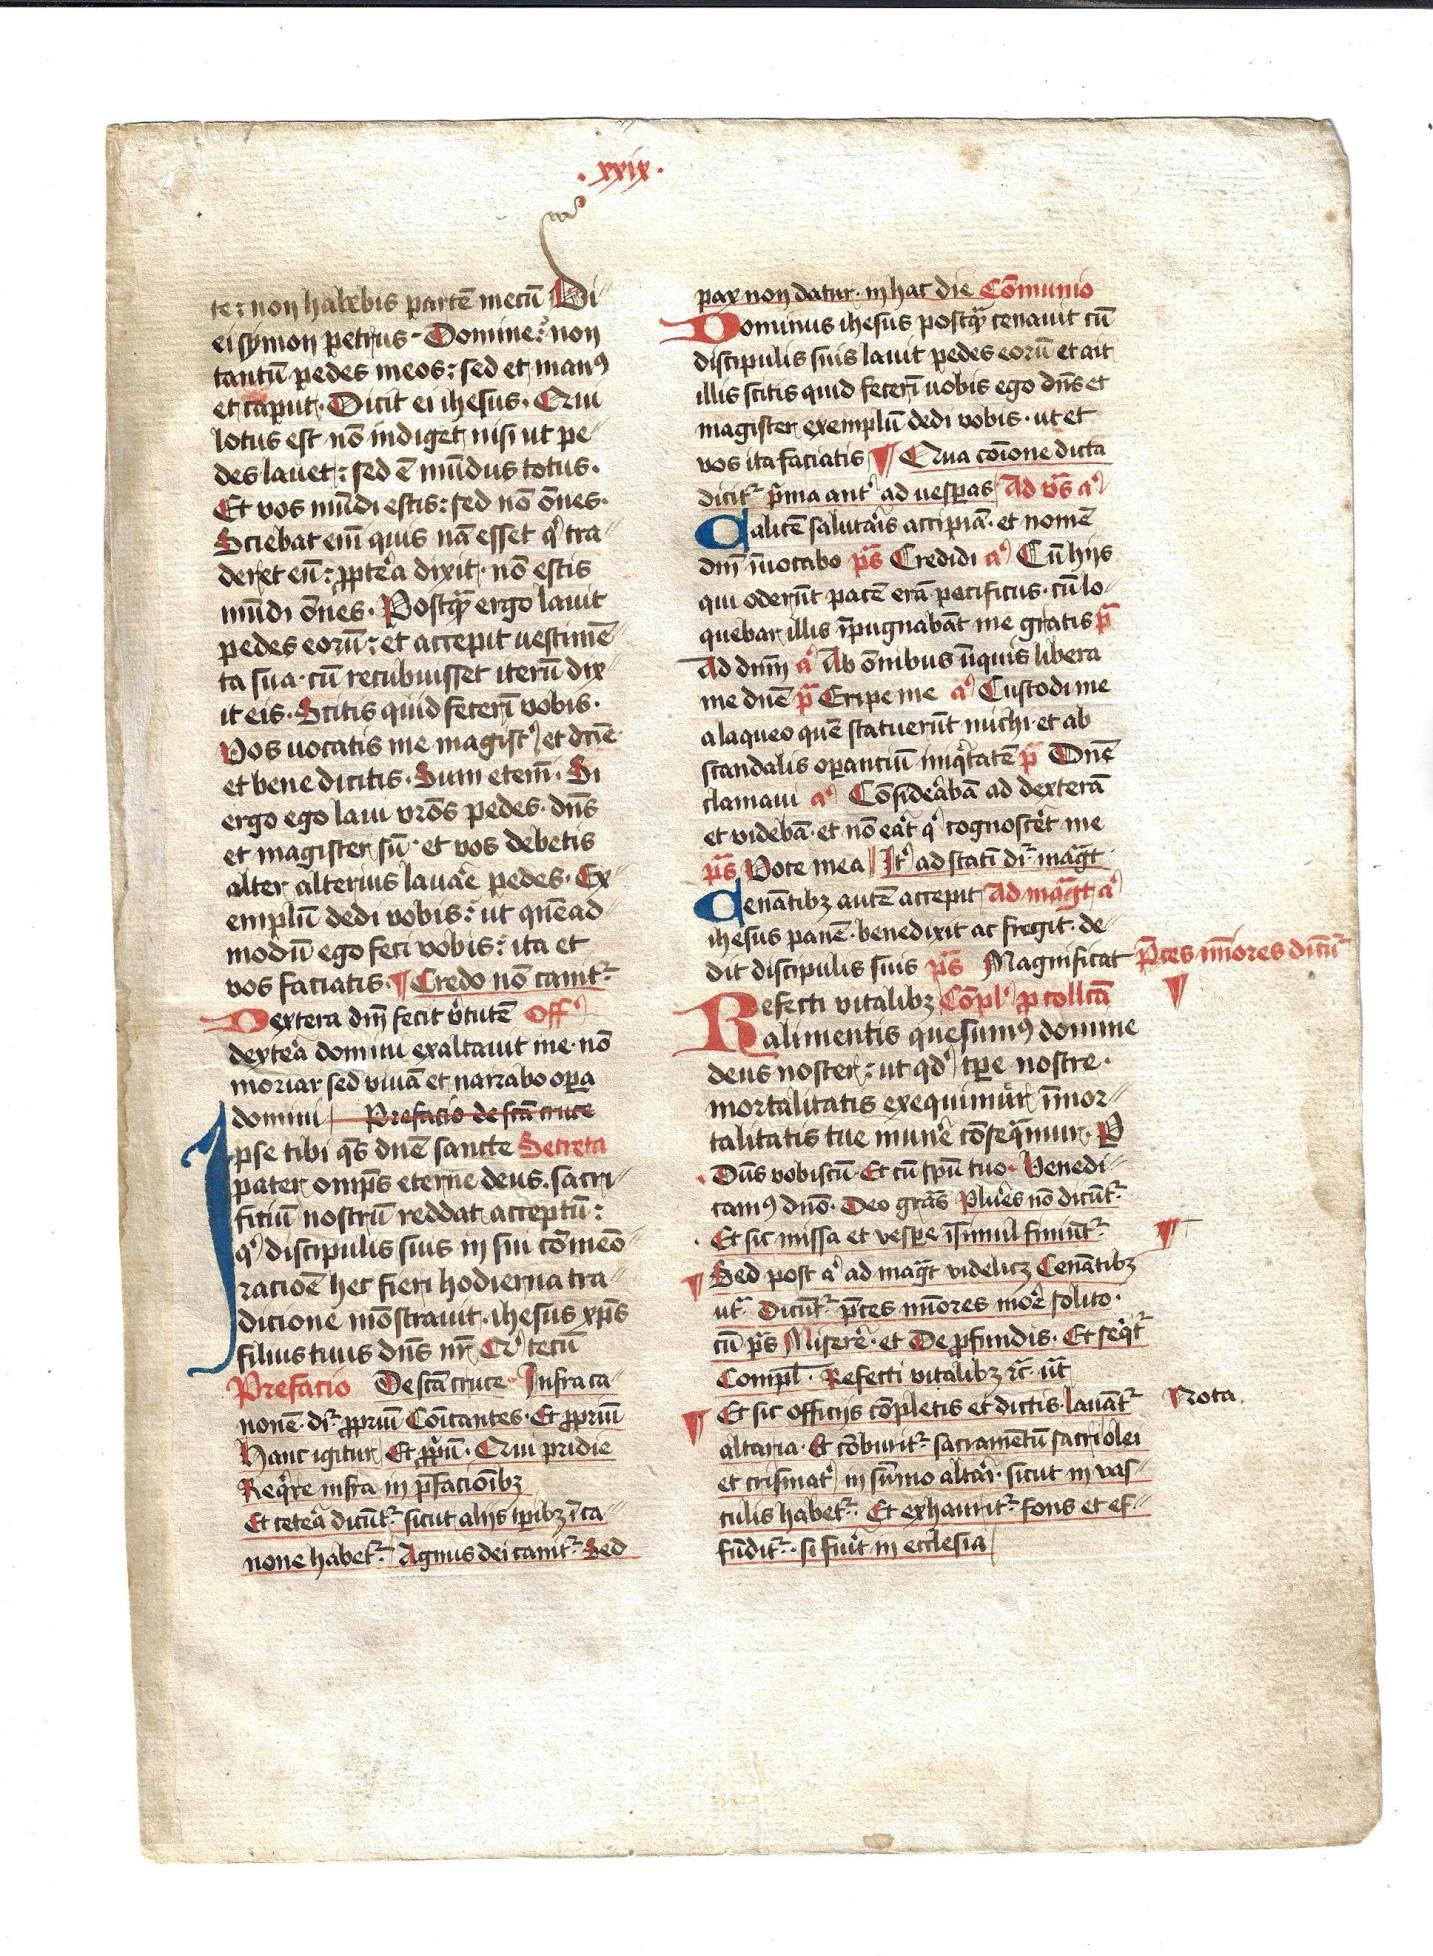 .xxix.
te: non habebis partē mecū Di
ei symon petrus - Domine: non
tantū pedes meos: sed et manꝰ
et caput. Dicit ei ihesus. Qui
lotus est nō indiget nisi ut pe
des lauet: sed ē mūdus totus.
Et vos mūdi estis: sed nō ōnes.
Sciebat em̄ quis nā esset qͥ tra
deret eū: ꝓpterea dixit. nō estis
mūdi ōnes. Postqͣ̄ ergo lauit
pedes eorū: et accepit uestimē
ta sua. cū recubuisset iterū dix
it eis. Scitis quid fecerī vobis.
Vos uocatis me magistꝰ et dn̄e
et bene dicitis. Sum etem̄. Si
ergo ego laui vr̄os pedes. dn̄s
et magister sū. et vos debetis
alter alterius lauare pedes. Ex
emplū dedi vobis: ut quēad
modū ego feci vobis: ita et
vos faciatis. ¶ Credo nō canitᷣ
Dextera dn̄i fecit v̓tutē Offꝰ
dextera domini exaltauit me. nō
moriar sed viuā et narrabo oꝑa
domini Prefacio de scā cruce
Ipse tibi qs̄ dn̄e sancte Secreta
pater omp̄s eterne deus. sacri
ficiū nostrū reddat acceptū:
qͥ discipulis suis in sui cōmeō
racioē hec fieri hodierna tra
dicione mōstrauit. ihesus xp̄s
filius tuus dn̄s nr̄ Qͥ tecū
Prefacio De scā cruce Infra ca
none. dr̄ ꝓpriū Cōicantes. Et ꝓpriū
Hanc igitur Et ꝓpriū. Qui pridie
Reqͥre infra in p̄facionibꝫ
Et cetera dicūtᷣ sicut alijs tꝑibꝫ ī ca
none habetᷣ. Agnus dei canitᷣ Sed
pax non datur. in hac die Cōmunio
Dominus ihesus postqͣ̄ cenauit cū
discipulis suis lauit pedes eorū et ait
illis scitis quid fecerī uobis ego dn̄s et
magister exemplū dedi vobis. ut et
vos ita faciatis ¶ Qua cōione dicta
dicitᷣ pͥma antꝰ ad uesꝑas Ad vs̄ aꝰ
Calicē salutaris accipiā. et nomē
dn̄i īuocabo ps̄ Credidi aꝰ Cū hijs
qui oderūt pacē erā pacificus. cū lo
quebar illis īpugnabāt me gratis p̄
Ad dn̄m aꝰ Ab ōnibus īiquis libera
me dn̄e p̄ Eripe me aꝰ Custodi me
a laqueo quē statuerūt michi. et ab
scandalis oꝑantiū iniqͥtatē p̄ Dn̄e
clamaui aꝰ Cōsiderabā ad dexterā
et videbā. et nō erat qͥ cognoscet me
ps̄ Voce mea Itꝰ ad statī dr̄ magt̄
Cenātibꝫ autē accepit Ad magt̄ aꝰ
ihesus panē. benedixit ac fregit. de
dit discipulis suis ps̄ Magnificat p̄ces mīores dicūtᷣ
Refecti vitalibꝫ Cōplꝰ ꝓ collcā
alimentis quesumꝰ domine
deus noster: ut qdꝰ tꝑe nostre.
mortalitatis exequimur īmor
talitatis tue munere cōseqͣmur. P
Dn̄s vobiscū. Et cū spū tuo. Benedi
camꝰ dn̄o. Deo gras̄ Plures nō dicūtᷣ
Et sic missa et vesꝑe īsimul finiūtᷣ
¶ Sed post aꝰ ad magt̄ videlicꝫ Cenātibꝫ
utᷣ. Dicūtᷣ p̄ces mīores more solito.
cū ps̄ Miserere. et De ꝓfundis. Et seqͥtᷣ
Compl̄. Refecti vitalibꝫ ꝛc̄ ut̄
¶ Et sic officijs cōpletis et dictis. lauātᷣ Nota.
altaria. Et cōburitᷣ sacramētū sacri olei
et crismatꝰ in sūmo altari. sicut in vas
culis habetᷣ. Et exhauritᷣ fons et ef
fūditᷣ. si fuit in ecclesia